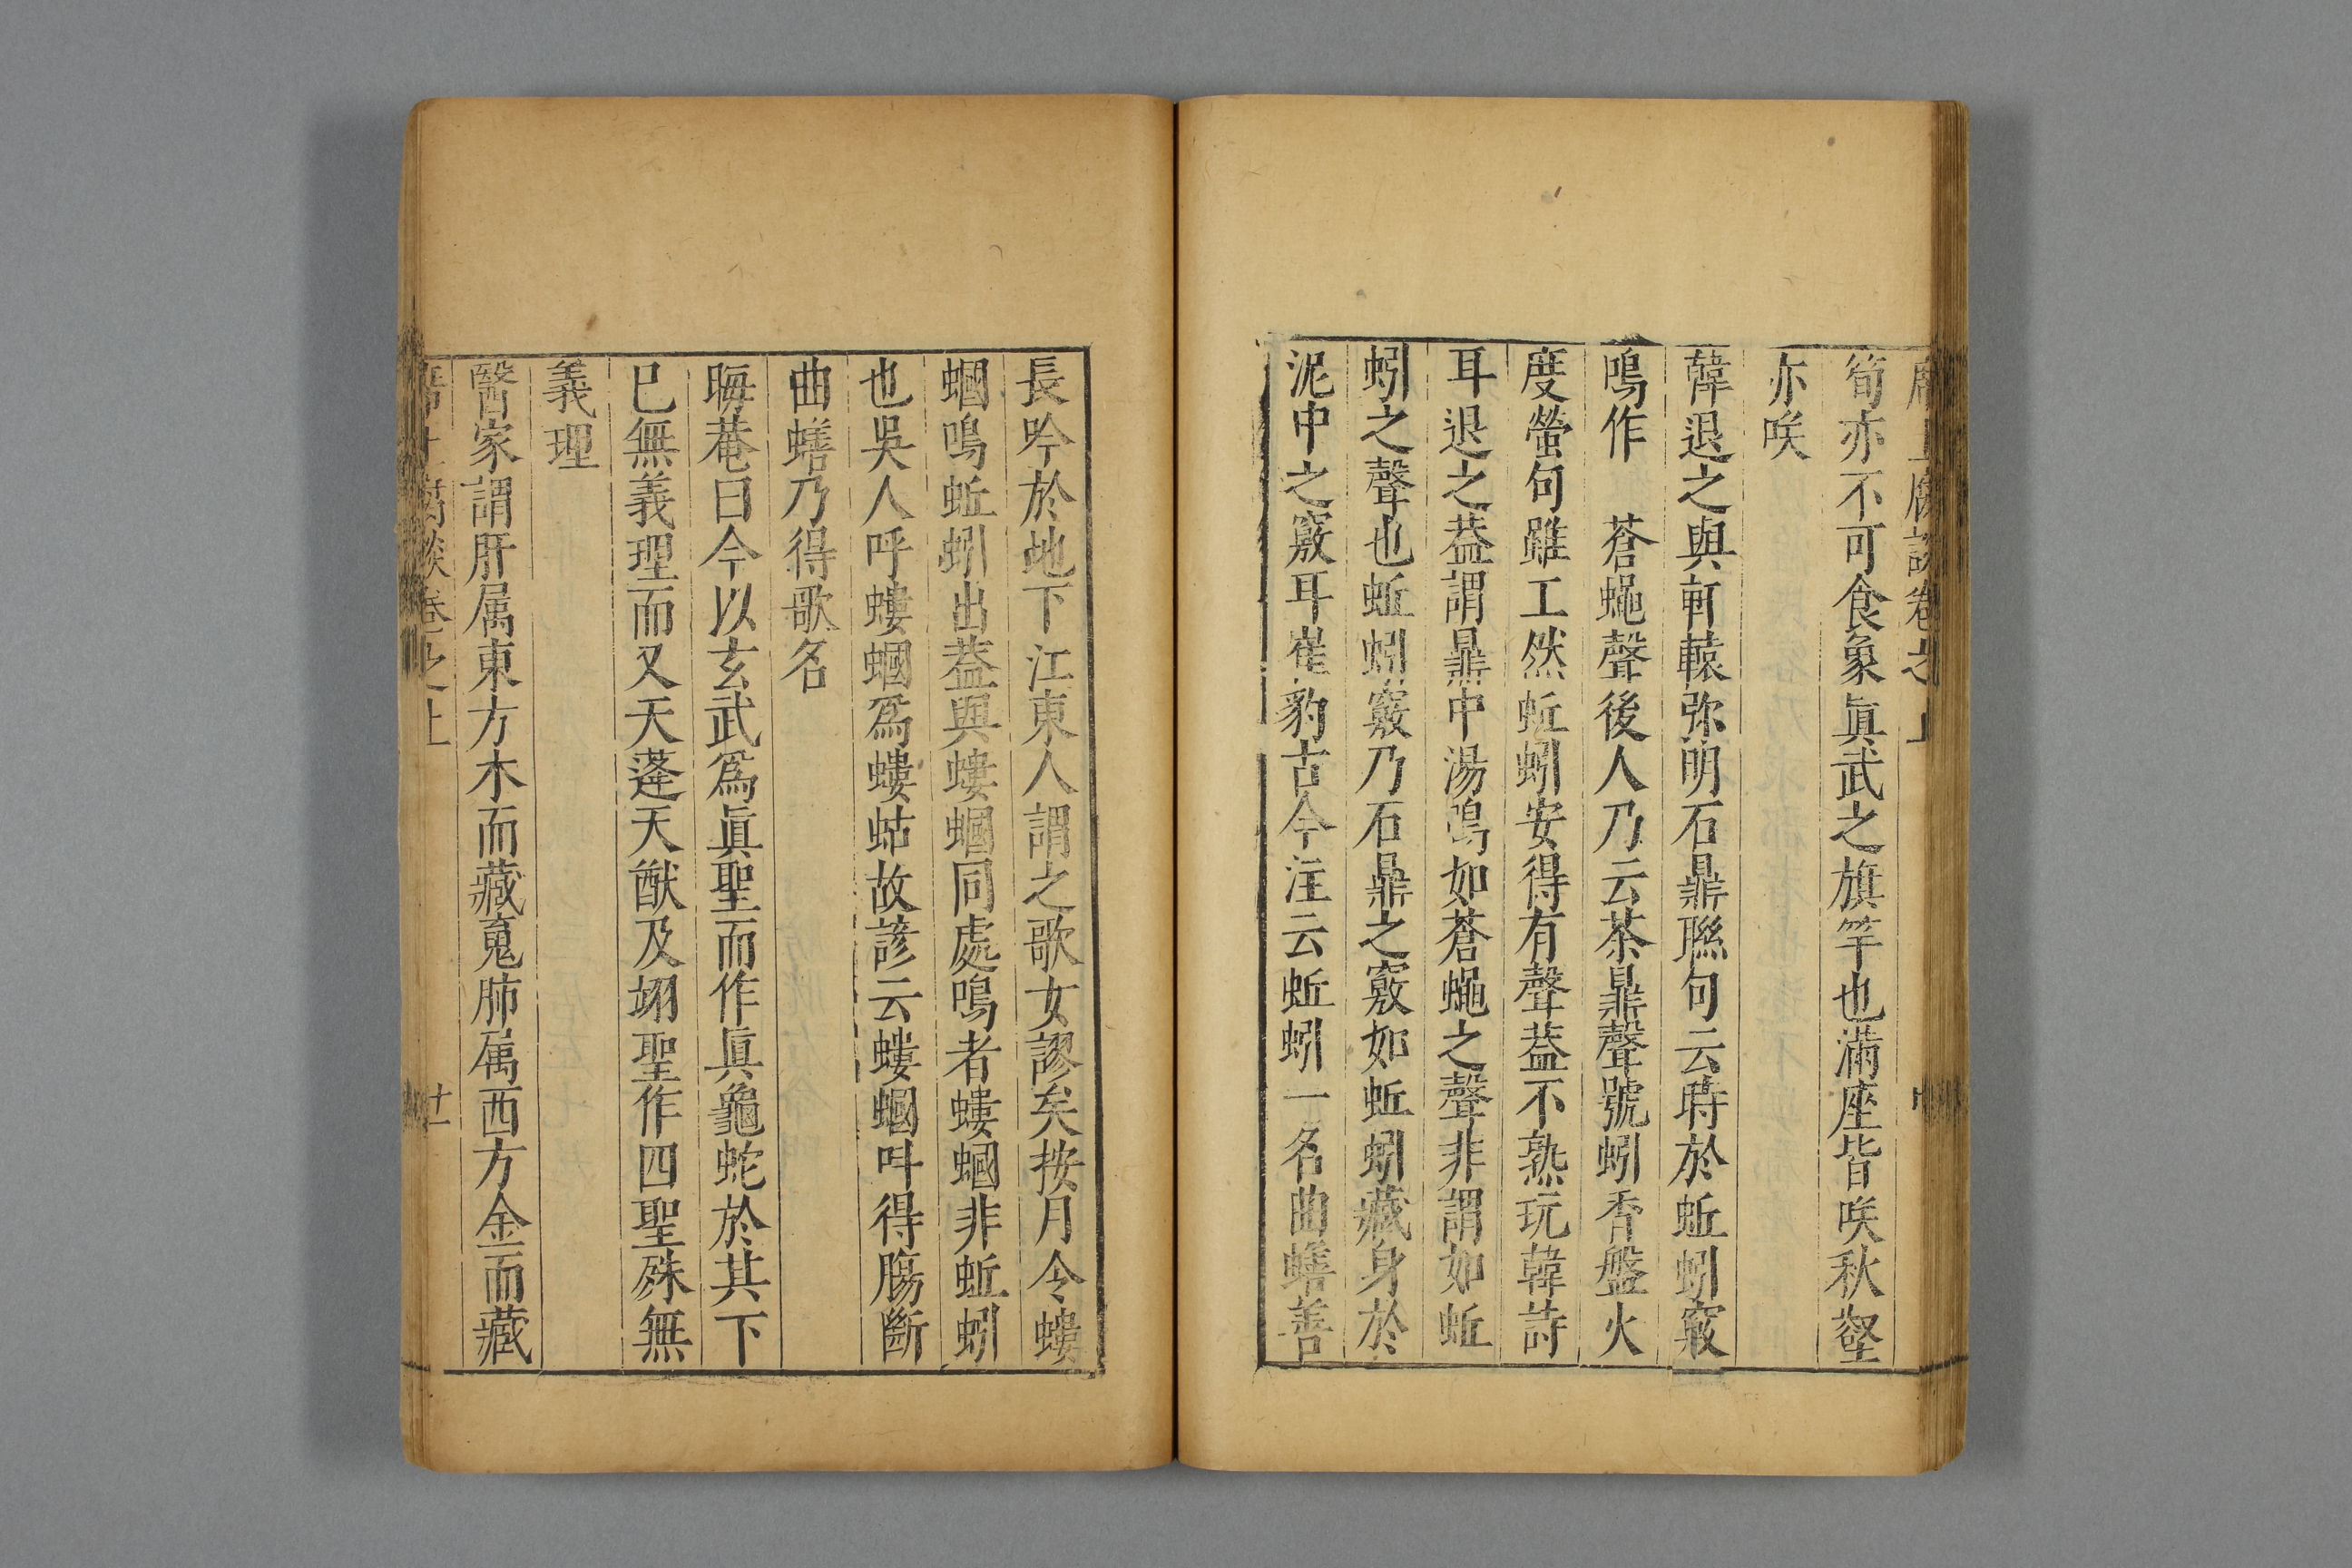 席上腐談卷之上
筍亦不可食象眞武之旗竿也滿座皆咲秋壑
亦咲
韓退之與軒轅弥明石鼎聮句云時於蚯蚓竅
鳴作 蒼蠅聲後人乃云茶鼎聲號蚓香盤火
度螢句雖工然蚯蚓安得有聲葢不熟玩韓詩
耳退之葢謂鼎中湯鳴如蒼蠅之聲非謂如蚯
蚓之聲也蚯蚓竅乃石鼎之竅如蚯蚓藏身於
泥中之竅耳崔豹古今注云蚯蚓一名曲蟮善
長吟於地下江東人謂之歌女謬矣按月令螻
蟈鳴蚯蚓出葢與螻蟈同處鳴者螻蟈非蚯蚓
也吳人呼螻蟈爲螻蛄故諺云螻蟈呌得膓斷
曲蟮乃得歌名
晦菴曰今以玄武爲眞聖而作眞龜蛇於其下
已無義理而又天蓬天猷及翊聖作四聖殊無
義理
醫家謂肝属東方木而藏䰟肺属西方金而藏
席上腐談卷之上 廿一